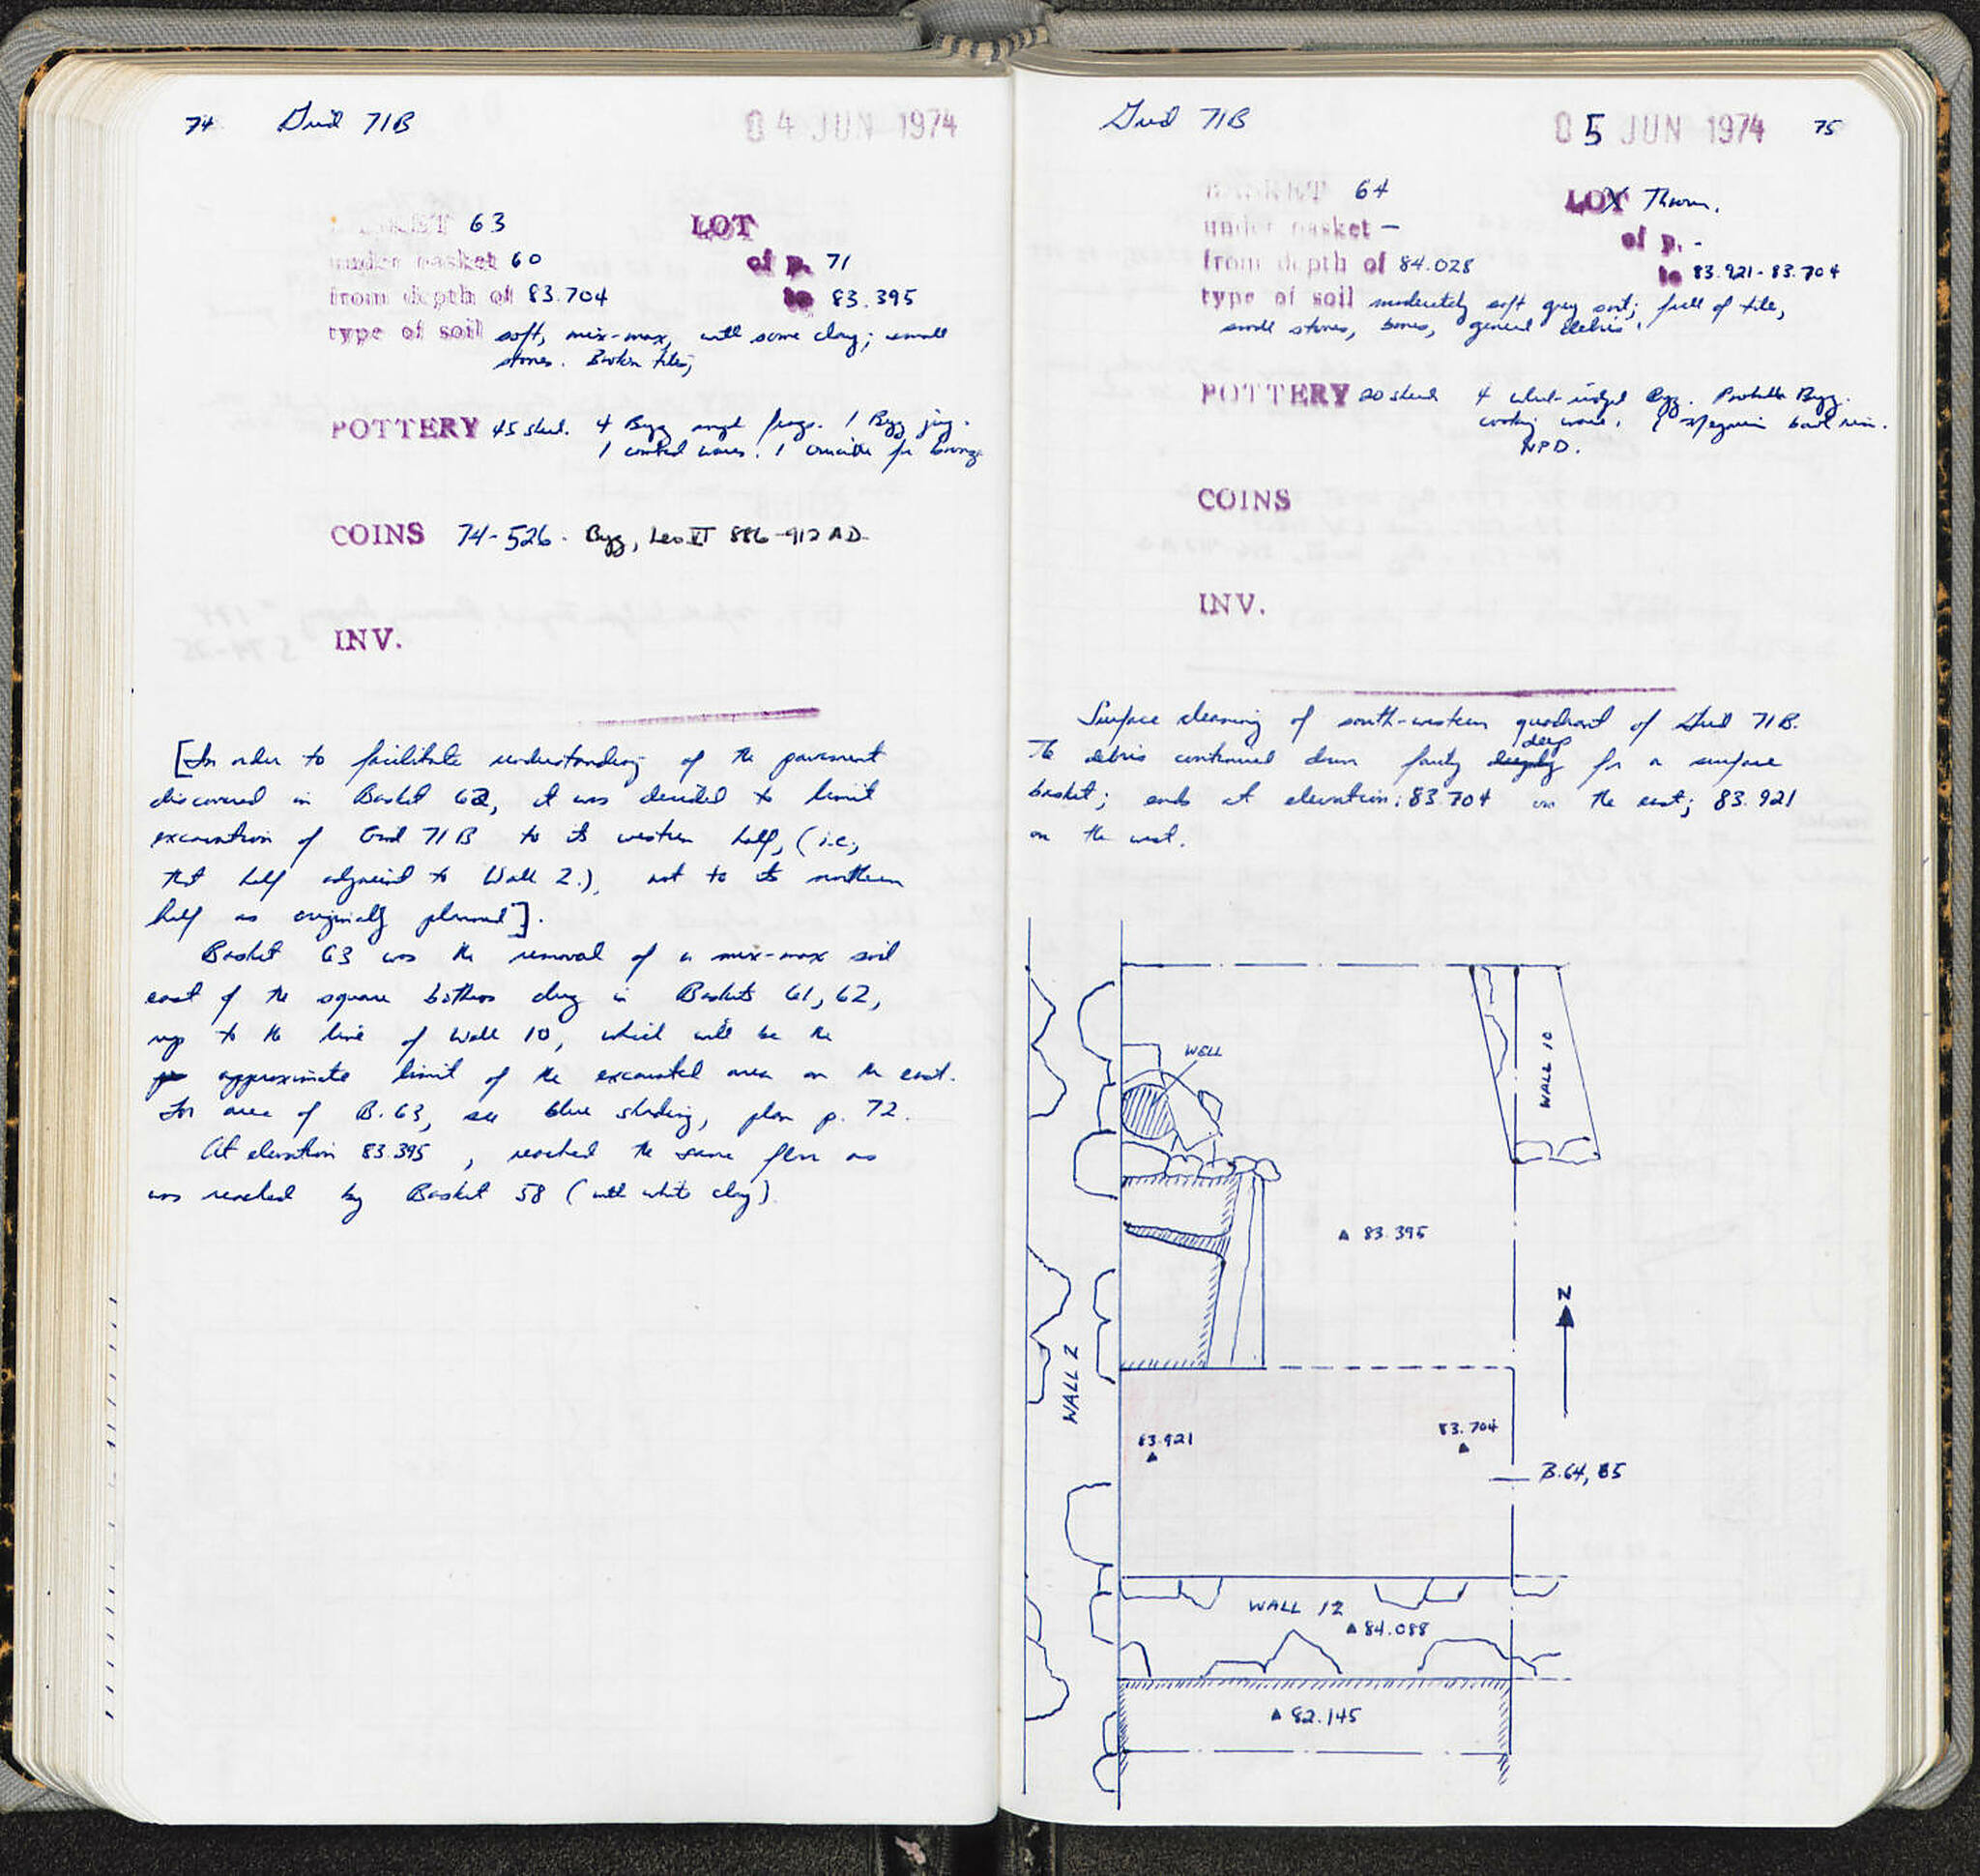 74 Grid 71B 04 JUN 1974
BASKET 63 LOT
under basket 60 of p. 71
from depth of 83.704 to 83.395
type of soil soft, mix-max, with some clay; small
stones. Broken tiles,
POTTERY 45 sherd. 4 Byz frags. 1 Byz jug.
1 combed ware. 1 crucible for bronze
COINS 74-526. Byz, Leo VI 886-912 AD
INV.
[In order to facilitate understanding of the pavement
discovered in Basket 62, it was decided to limit
excavation of Grid 71B to its western half, (i.e.,
that half adjacent to Wall 2.), not to its northern
half as originally planned].
Basket 63 was the removal of a mix-max soil
east of the square bothros dug in Baskets 61, 62,
up to the line of Wall 10, which will be the
approximate limit of the excavated area on the east.
For area of B.63, see blue shading, plan p. 72.
At elevation 83.395, reached the same floor as
was reached by Basket 58 (with white clay).
Grid 71B 05 JUN 1974 75
BASKET 64 LOT Thrown.
under basket – of p. -
from depth of 84.028 to 83.921-83.704
type of soil moderately soft grey soil; full of tile,
small stones, bones, general debris.
POTTERY 20 sherd 4 wheel-ridged Byz. Probable Byz.
cooking ware. 1 Megarian bowl rim.
NPD.
COINS
INV.
Surface cleaning of south-western quadrant of Grid 71B.
The debris continued down fairly deeply deep for a surface
basket; ends at elevation: 83.704 on the east; 83.921
on the west.
WELL
WALL 10
83.395
N
WALL 2
83.921
83.704
B.64, 65
WALL 12
84.088
82.145